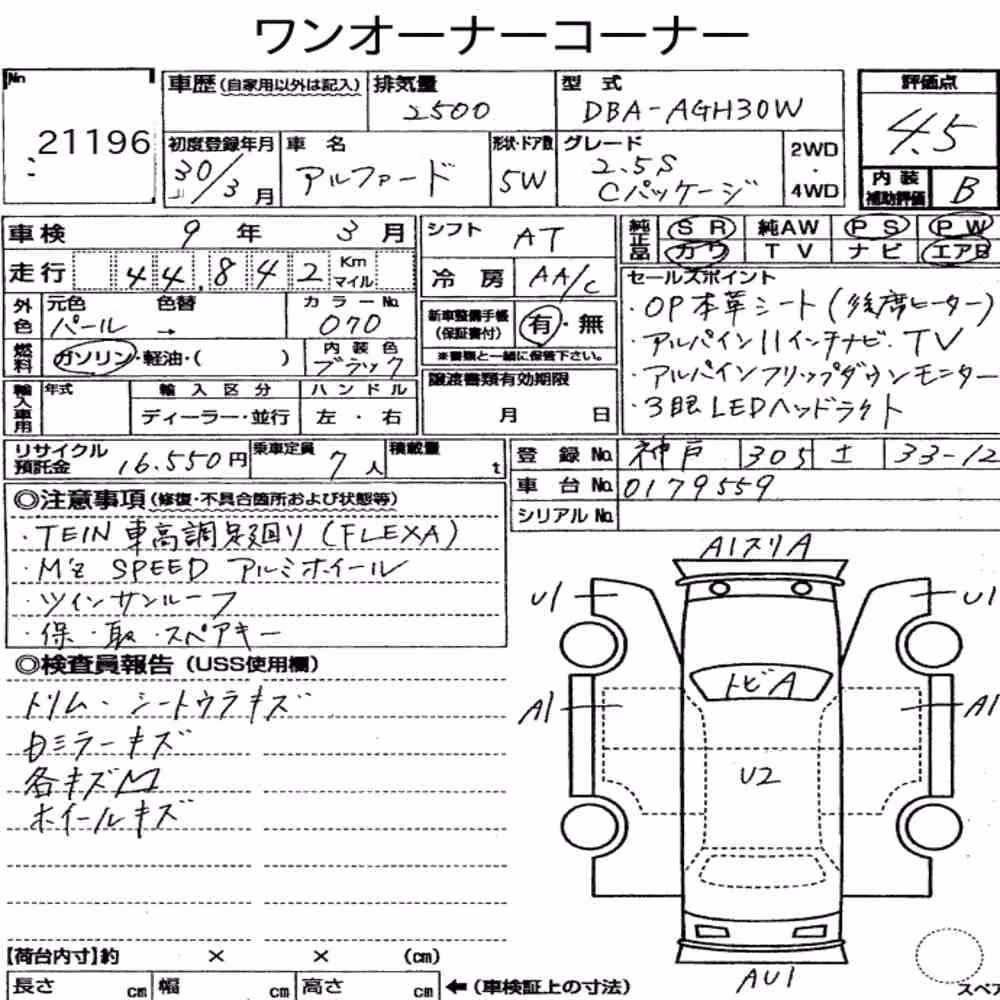 ワンオーナーコーナー
No
21196
車歴 (自家用以外は記入)
排気量
2500
型式
DBA-AGH30W
評価点
4.5
初度登録年月
30/3月
車名
アルファード
形状・ドア数
5W
グレード
2.5S
Cパッケージ
2WD
・
4WD
内装
補助評価
B
車検 9年 3月
シフト AT
純正品
SR 純AW PS PW
カワ TV ナビ エアB
走行 44,842 Km マイル
冷房 AA/C
セールスポイント
・OP本革シート(後席ヒーター)
・アルパイン11インチナビ・TV
・アルパインフリップダウンモニター
・3眼LEDヘッドライト
外色
元色 色替
パール →
カラーNo.
070
新車整備手帳
(保証書付)
有・無
※書類と一緒に保管下さい。
燃料
ガソリン・軽油・( )
内装色
ブラック
譲渡書類有効期限
月 日
輸入車用
年式
輸入区分
ディーラー・並行
ハンドル
左・右
リサイクル
預託金
16.550円
乗車定員
7人
積載量
t
登録No. 神戸 305 ま 33-12
車台No. 0179559
シリアルNo.
◎注意事項 (修復・不具合箇所および状態等)
・TEIN 車高調足廻り (FLEXA)
・M'z SPEED アルミホイール
・ツインサンルーフ
・保・取・スペアキー
◎検査員報告 (USS使用欄)
トリム・シートウラキズ
内ミラーキズ
各キズM
ホイールキズ
A1スリA
U1
U1
トビA
A1
A1
U2
AU1
【荷台内寸】約 × × (cm)
長さ cm 幅 cm 高さ cm ←(車検証上の寸法)
スペア